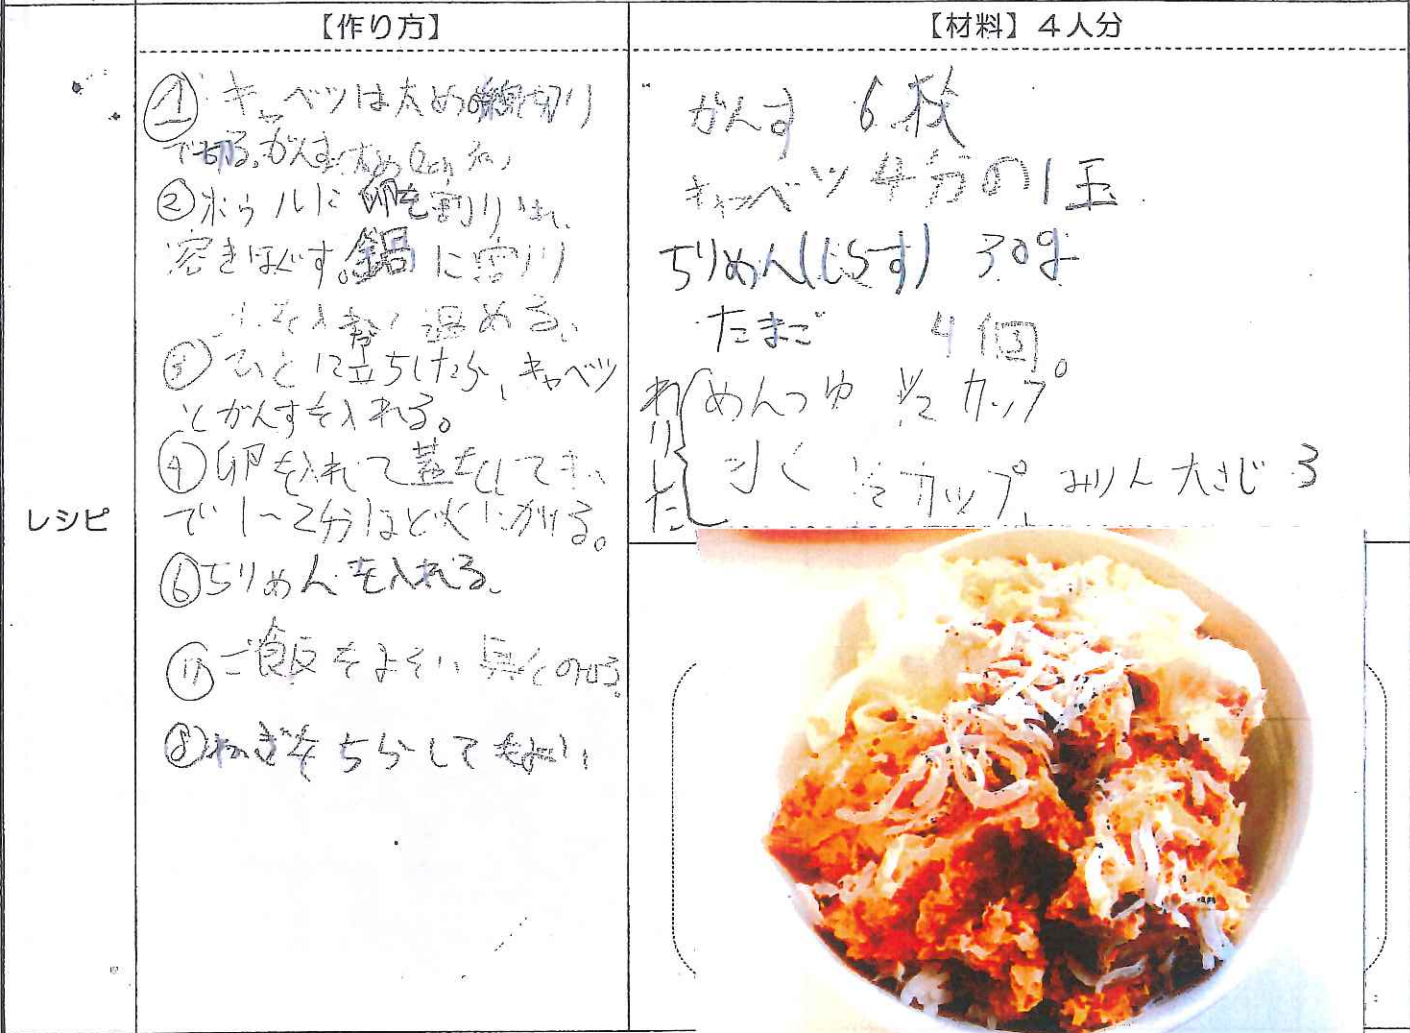 レシピ
【作り方】
① キャベツは太めの千切り
で切る。がんすは太め(2cm
②ボウルに卵を割り
溶きほぐす。鍋に割り
を入れ 温める。
③ひと煮立ちしたら、キャベツ
とがんすを入れる。
④卵を入れて蓋をして
で1〜2分ほど火にかける。
⑥ちりめんを入れる。
ご飯をよそい具をのせる。
⑧ねぎをちらしてもよい
【材料】４人分
がんす 6枚
キャベツ 4分の1玉
ちりめん(しらす) 30g
たまご 4個。
わりした
めんつゆ 1/2カップ
水 1/2カップ みりん大さじ3